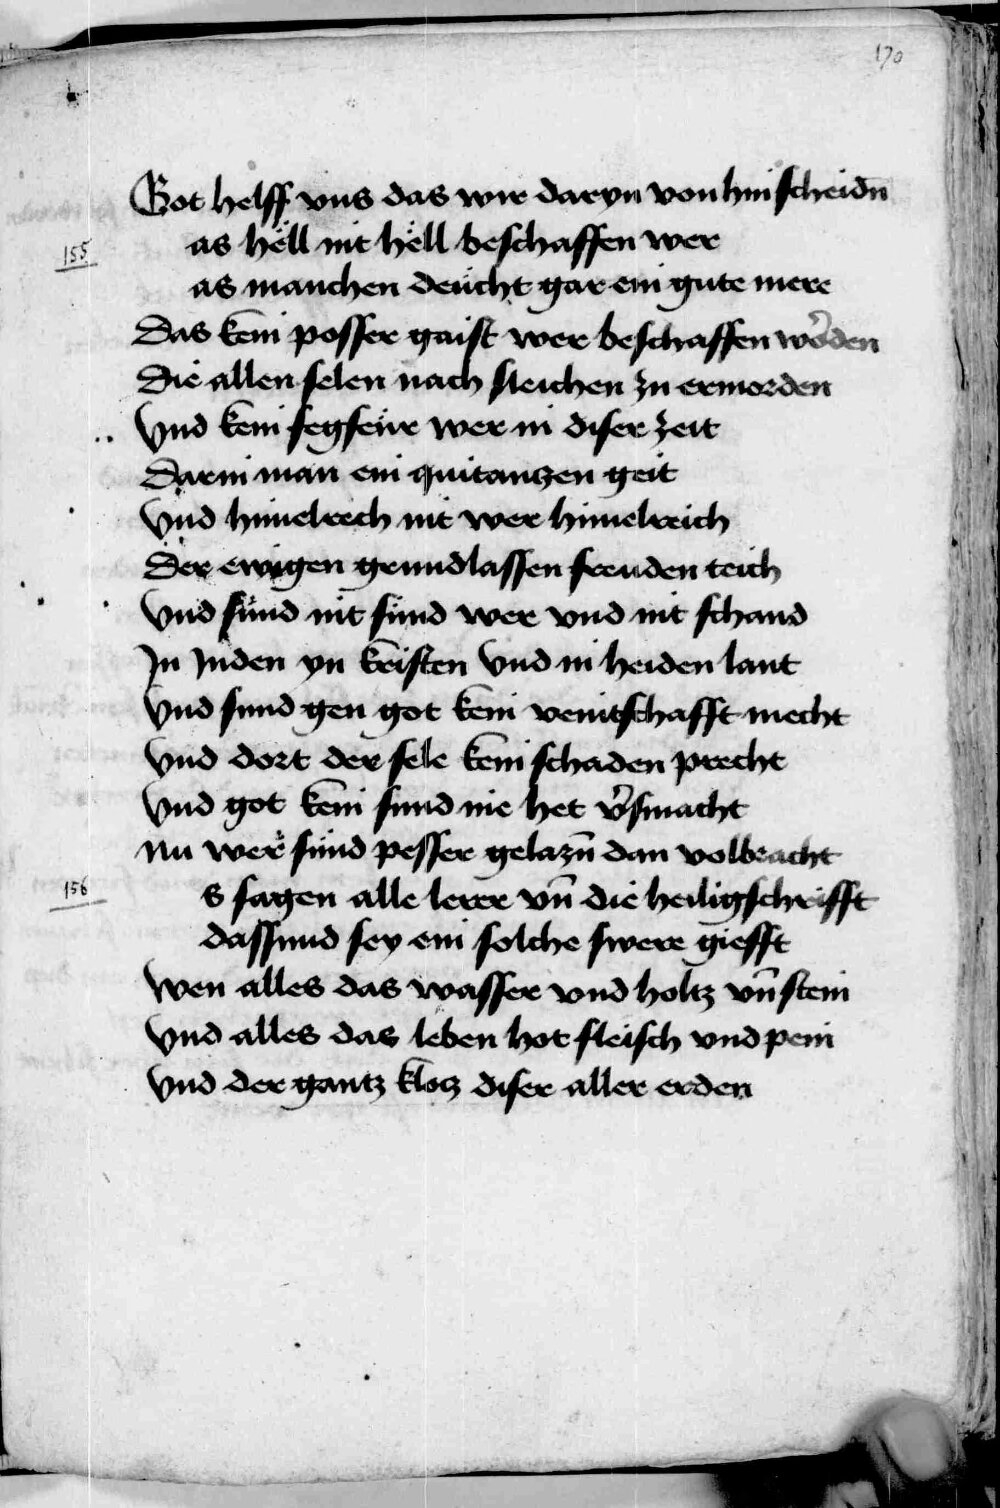 170
Got helff vns das wir daryn von hin scheidn̄
155
as hëll nit hëll beschaffen wer
as manchen deücht gar ein gute mere
Das kein posser gaist wer beschaffen wͦ̃den
Die allen selen nach sleichen zu ermorden
Vnd kein fegfeür wer in diser zeit
Darin man ein quitanczen geit
Vnd himelreich nit wer himelreich
Der ewigen grundlassen freuden teich
Vnd sünd nit sünd wer vnd nit schand
In Juden yn kristen vnd in heiden lant
Vnd sund gen got kein veintschafft mecht
Vnd dort der sele kein schaden precht
Vnd got kein sund nie het v̄smacht
Nu wer sünd pesser gelazn̄ dan volbracht
156
s sagen alle lerer vn̄ die heilig schrifft
das sund sey ein solche swere giefft
Wen alles das wasser vnd holtz vn̄ stein
Vnd alles das leben hot fleisch vnd pein
Vnd der gantz klotz diser aller erden